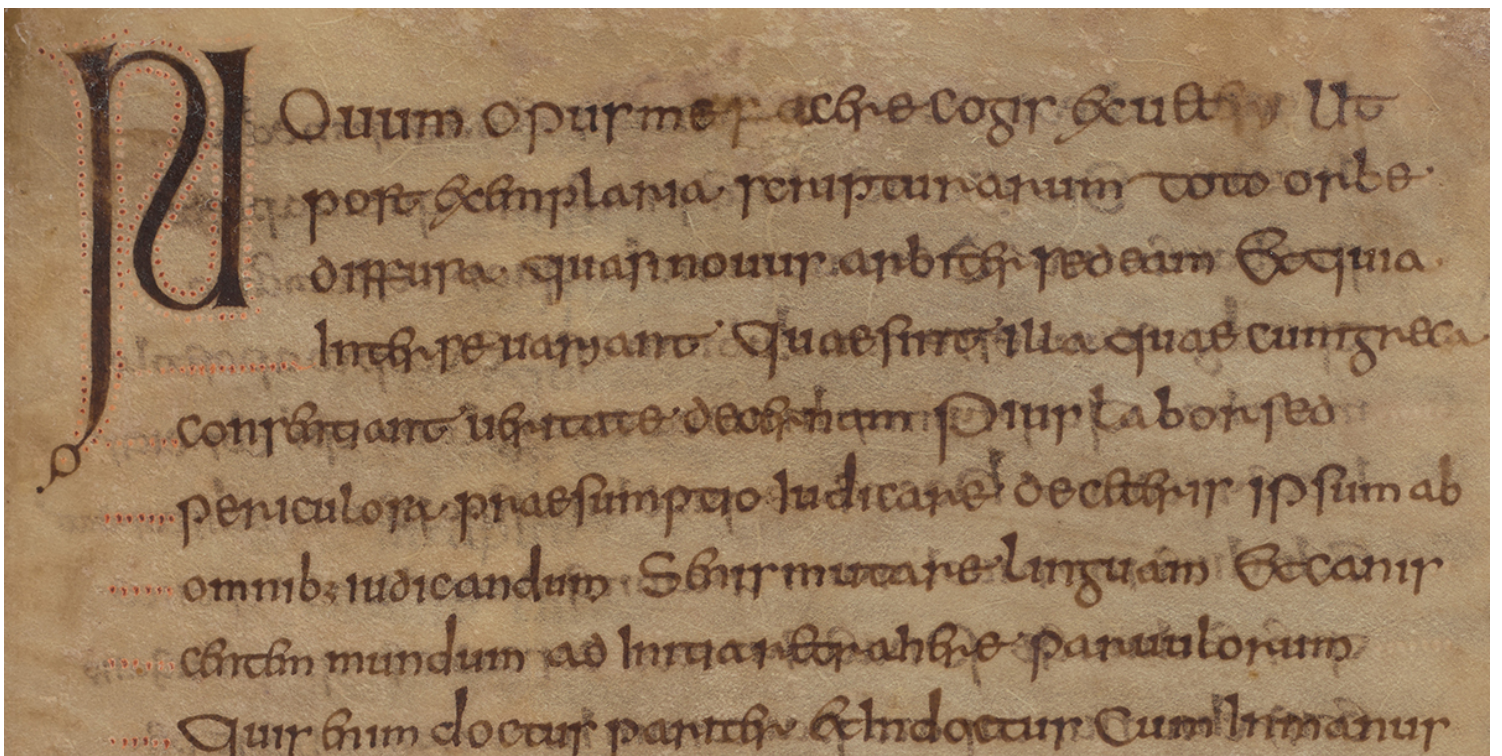 NOuum opus me facere cogis exuetere Ut
post exemplaria scripturarum toto orbe
diffusa quasi nouus arbiter sedeam Et quia
Inter se uariant Quae sint illa quae cum greca
consentiant ueritate decernam Pius labor sed
periculosa praesumptio Iudicare de ceteris ipsum ab
omnib; iudicandum Senis mutare linguam Et canis
centem mundum ad Initia retrahere paruulorum
Quis enim doctus pariter et Indoctus Cum In manus